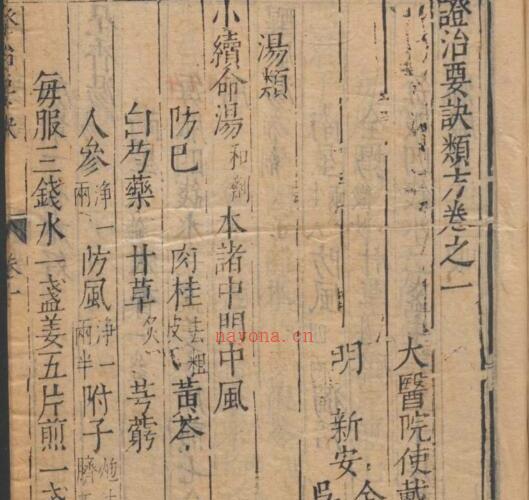 證治要訣類方卷之一
大醫院使戴
明 新安
吳
湯類
小續命湯 和劑 本諸中門中風
防已 肉桂 去粗皮 黃芩
白芍藥 甘草 炙 芎藭
人參 淨一兩 防風 淨一兩半 附子 臍
每服三錢水一盞姜五片煎一
卷一
nayona.cn